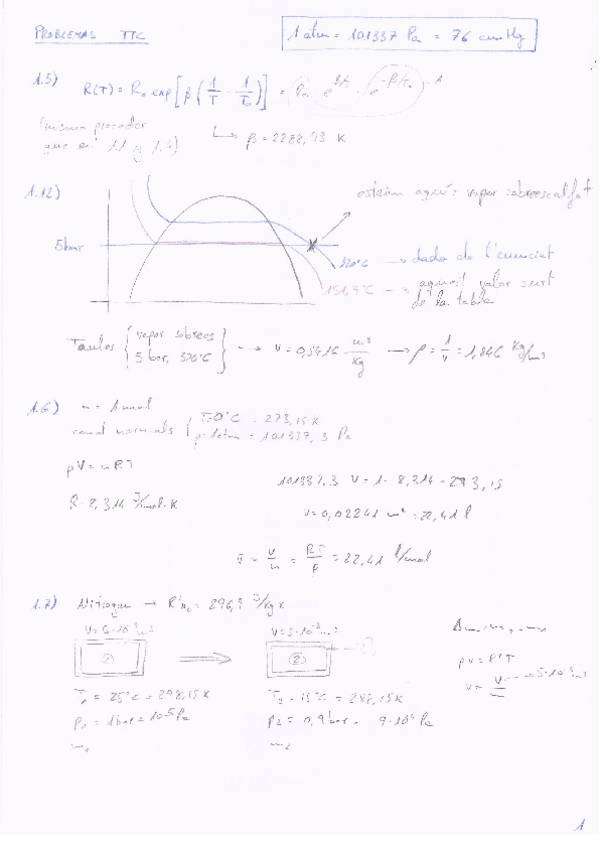 PROBLEMAS TTC
1 atm = 101337 Pa = 76 cm Hg
1.5) R(T) = R₀ exp[β(1/T - 1/T₀)] = R₀ · e^(β/T) · e^(-β/T₀)
(mismo proceder
que en 1.1 y 1.4) β = 2288,93 K
1.12)
estaríam aquí: vapor sobreescalfat
5 bar
320°C → dada de l'enunciat
151,9°C → aquest valor surt
de la tabla
Taules {vapor sobrees
5 bar, 320°C} → v = 0,5416 m³/kg → ρ = 1/v = 1,846 kg/m³
1.6) n = 1 mol
cond normals {T=0°C = 273,15 K
p=1atm = 101337,3 Pa
pV = nRT
101337,3 V = 1 · 8,314 · 273,15
R = 8,314 J/mol·K
V = 0,02241 m³ = 22,41 l
v̄ = V/n = RT/p = 22,41 l/mol
1.7) Nitrogen → R'N₂ = 296,9 J/kg K
V = 5·10⁻³ m³
V = 5·10⁻³ m³
①
②
pv = R'T
T₁ = 25°C = 298,15 K
T₂ = 15°C = 288,15 K
v = V/m → 5·10⁻³ m³
p₁ = 1 bar = 10⁵ Pa
p₂ = 0,9 bar = 9·10⁴ Pa
m₁
m₂
1